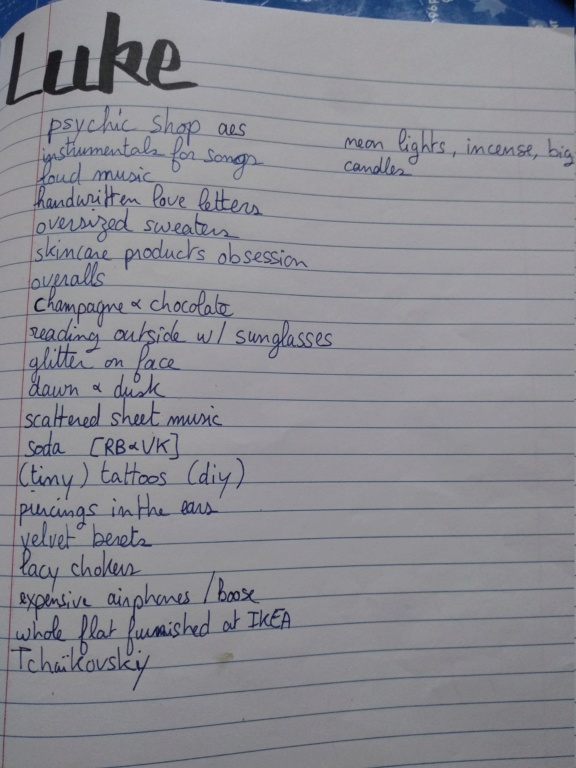 Luke
psychic shop aes
instrumentals for songs
loud music
handwritten love letters
oversized sweaters
skincare products obsession
overalls
champagne & chocolate
reading outside w/ sunglasses
glitter on face
dawn & dusk
scattered sheet music
soda [RB&VK]
(tiny) tattoos (diy)
piercings in the ears
velvet berets
lacy chokers
expensive airphones / Boose
whole flat furnished at IKEA
Tchaïkovskiy
neon lights, incense, big
candles